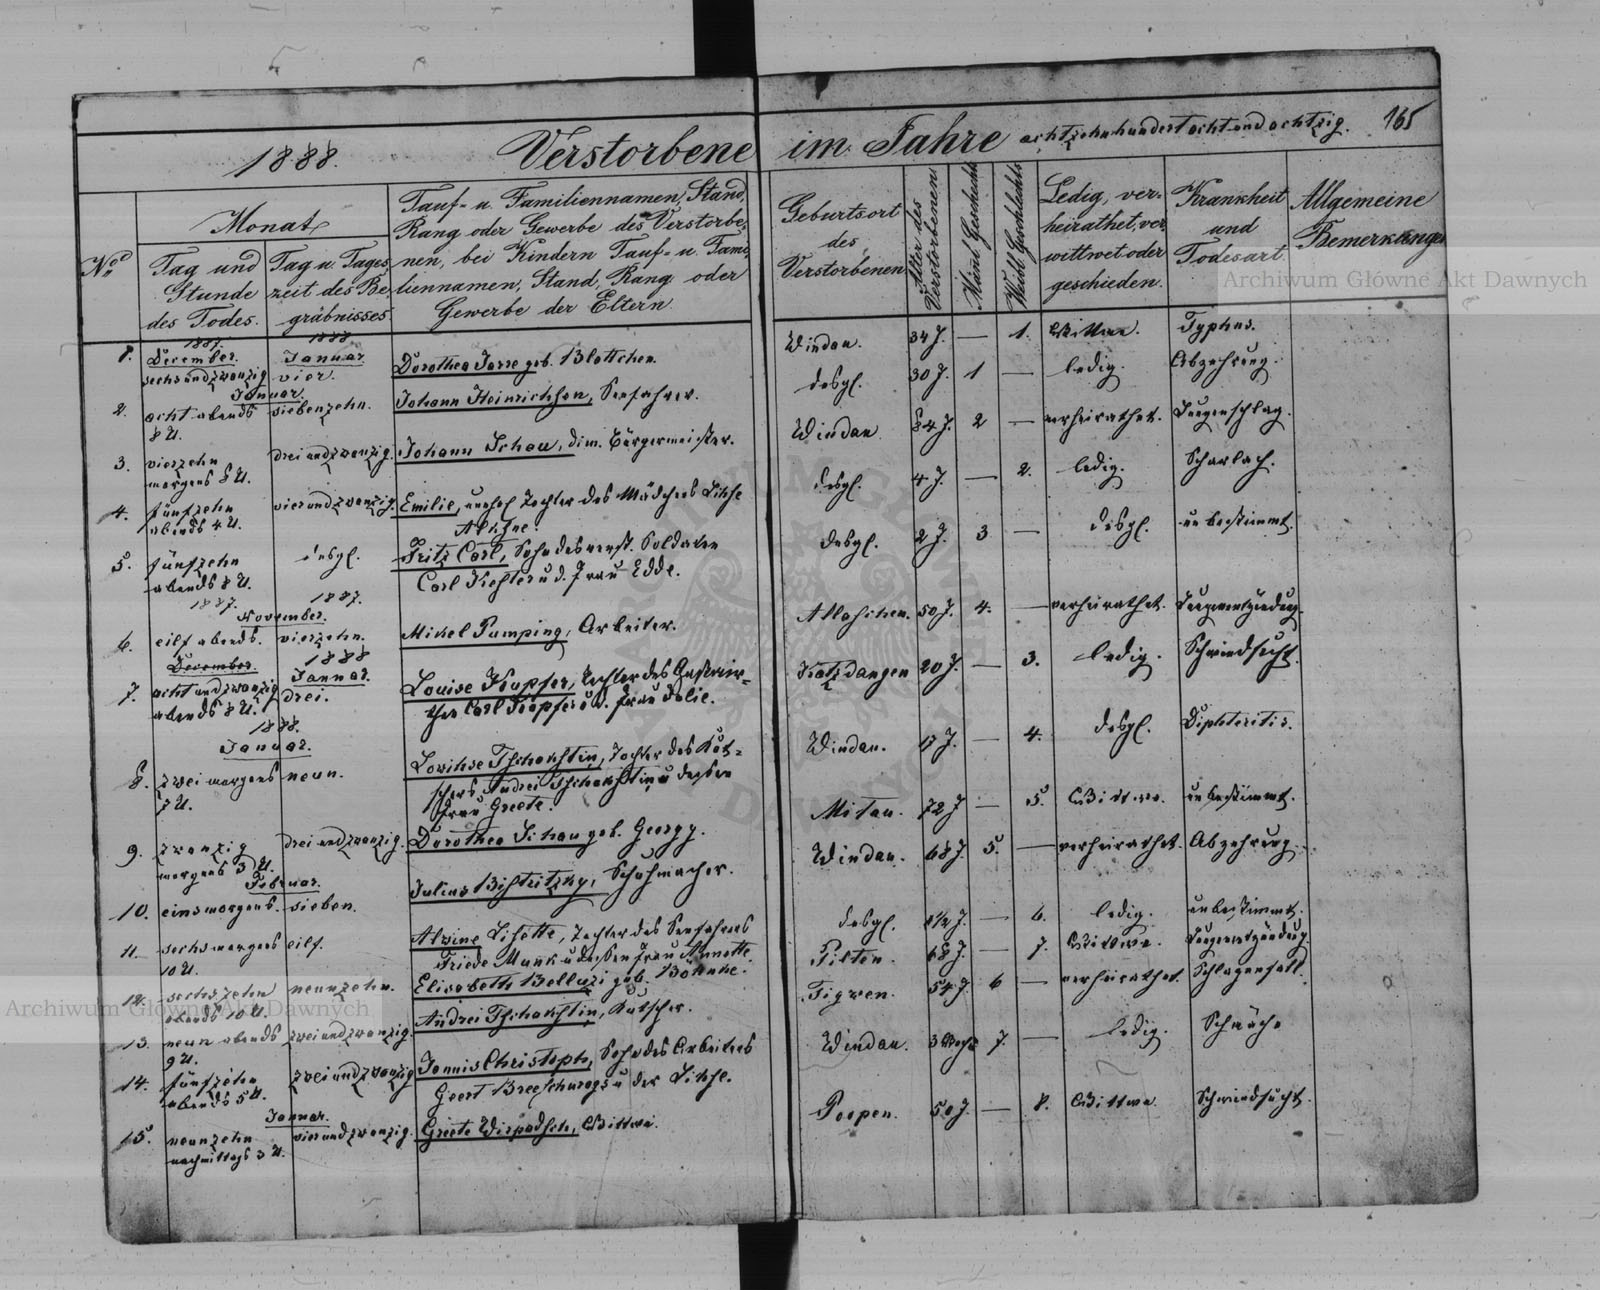 165
1888. Verstorbene im Jahre achtzehnhundert acht und achtzig.
No
Monat
Tag und Stunde des Todes.
Tag u. Tageszeit des Begräbnisses
Tauf- u. Familiennamen, Stand,
Rang oder Gewerbe des Verstorbe-
nen, bei Kindern Tauf- u. Fami-
liennamen, Stand, Rang oder
Gewerbe der Eltern
Geburtsort
des
Verstorbenen
Alter des Verstorbenen
Mänl. Geschlechts
Weibl. Geschlechts
Ledig, ver-
heirathet, ver-
wittwet oder
geschieden.
Krankheit
und
Todesart.
Allgemeine
Bemerkungen
1887. 1888
1. December. Januar
sechsundzwanzig vier. Dorothea geb. Blottchen. Windau. 34 J. — 1. Wittwe. Typhus.
Januar.
2. acht abends siebenzehn. Johann Heinrichson, Seefahrer. desgl. 30 J. 1 — ledig. Abzehrung.
8 U.
3. vierzehn dreiundzwanzig. Johann Schau, dim. Bürgermeister. Windau 84 J. 2 — verheirathet. Lungenschlag.
morgens 8 U.
4. fünfzehn vierundzwanzig. Emilie, unehel. Tochter des Mädchens desgl. 4 J. — 2. ledig. Scharlach.
abends 4 U.
5. fünfzehn desgl. Fritz Carl, Sohn des verst. Soldaten desgl. 2 J. 3 — desgl. unbestimmt.
abends 8 U. Carl u. d. Frau Edde.
1887. 1887.
November.
6. eilf abends. vierzehn. Mikel Pumping, Arbeiter. 50 J. 4. — verheirathet. Lungenentzündung.
December. 1888
Januar.
7. achtundzwanzig drei. Louise Kupfer, Tochter des Gastwir-
abends 8 U. then Carl Kupfer u. d. Frau Julie. Katzdangen 20 J. — 3. ledig. Schwindsucht.
1888.
Januar.
8. zwei morgens neun. Lowihse Tschakstin, Tochter des Kut-
7 U. schers Andrei Tschakstin u dessen
Frau Greete. Windau. — 4. desgl. Diphteritis.
9. zwanzig dreiundzwanzig. Dorothea Schau geb. Georgy. Mitau. 72 J — 5. Wittwe. unbestimmt.
morgens 3 U.
Februar.
10. eins morgens. sieben. Julius Bistritzky, Schuhmacher. Windau. 68 J. 5. — verheirathet. Abzehrung.
11. sechs morgens eilf. Alwine Lisette, Tochter des Seefahrers
10 U. Friede Munk u dessen Frau Annette. desgl. 1½ J. — 6. ledig. unbestimmt.
12. sechszehn neunzehn. Elisabeth Belluzi geb. Böhnke. Pilten. 68 J. — 7. Wittwe. Lungenentzündung.
abends 10 U.
13. neun abends zweiundzwanzig. Andrei Tschakstin, Kutscher. Tigwen. 54 J. 6 — verheirathet. Schlagenfall.
9 U.
14. fünfzehn zweiundzwanzig Jannis Christoph, Sohn des Arbeiters
abends 5 U. Geert u der Lihse. Windau. 3 Woch. 7. — ledig. Schwäche
Januar.
15. neunzehn vierundzwanzig. Greete Wirpodsch, Wittwe. Poopen. 50 J. — 8. Wittwe. Schwindsucht.
nachmittags 3 U.
Archiwum Główne Akt Dawnych
Archiwum Główne Akt Dawnych